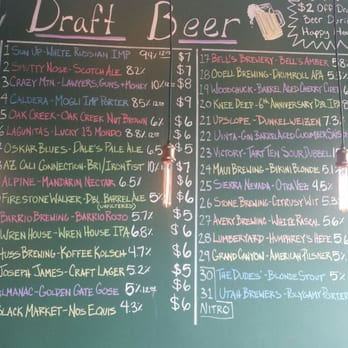 Draft Beer
1 Sun Up - White Russian IMP 9.4% 12oz $7
2 Smutty Nose - Scotch Ale 8.2% $7
3 Crazy Mtn - Lawyers, Guns & Money 10% $8
4 Caldera - Mogli Imp Porter 8.5% $9
5 Oak Creek - Oak Creek Nut Brown $6
6 Lagunitas - Lucky 13 Mondo 8.8% $6
Oskar Blues - Dale's Pale Ale $5
AZ Cali Connection - Bri/Iron Fist 10%
Alpine - Mandarin Nectar 6.5%
Firestone Walker - Dbl Barrel Ale 5%
(unfiltered)
Barrio Brewing - Barrio Rojo 5.7% $5
Wren House - Wren House IPA 6.8% $6
Huss Brewing - Koffee Kolsch 4.7% $6
Joseph James - Craft Lager 5.2% $5
Almanac - Golden Gate Gose 5% 12oz $6
Black Market - Nos Equis 4.3% $6
$2 Off Dra
Beer Durin
Happy Ho
17 Bell's Brewery - Bell's Amber
18 Odell Brewing - Drumroll APA 5
19 Woodchuck - Barrel Aged Cherry Cider
20 Knee Deep - 6th Anniversary Dbl IPA
21 Upslope - Dunkelweizen 7.3
22 Uinta - Gin Barrel Aged Cucumber
Victory - Tart Ten Sour Dubbel
24 Maui Brewing - Bikini Blonde 5.1
25 Sierra Nevada - Otra Vez 4.5
26 Stone Brewing - Citrusy Wit 5.3
27 Avery Brewing - White Rascal 5.6
28 Lumberyard - Humphrey's Hefe 5
29 Grand Canyon - American Pilsner 5
30 The Dudes' - Blonde Stout 5%
31 Utah Brewers - Polygamy Porter
Nitro